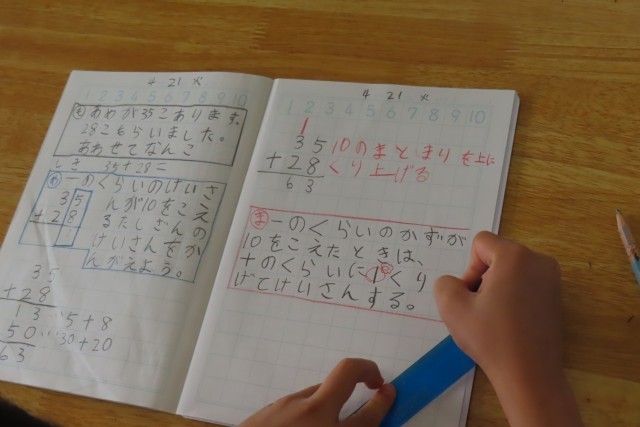 4 21 火
1 2 3 4 5 6 7 8 9 10
も あめが35こあります。
28こもらいました。
あわせてなんこ
しき 35+28=
め 一のくらいのけいさ
んが10をこえ
るたしざんの
けいさんをか
んがえよう。
35
+28
35
+28
13…5+8
50…30+20
63
4 21 火
1 2 3 4 5 6 7 8 9 10
1
35 10のまとまりを上に
+28 くり上げる
63
ま 一のくらいのかずが
10をこえたときは、
十のくらいに1くり
げてけいさんする。